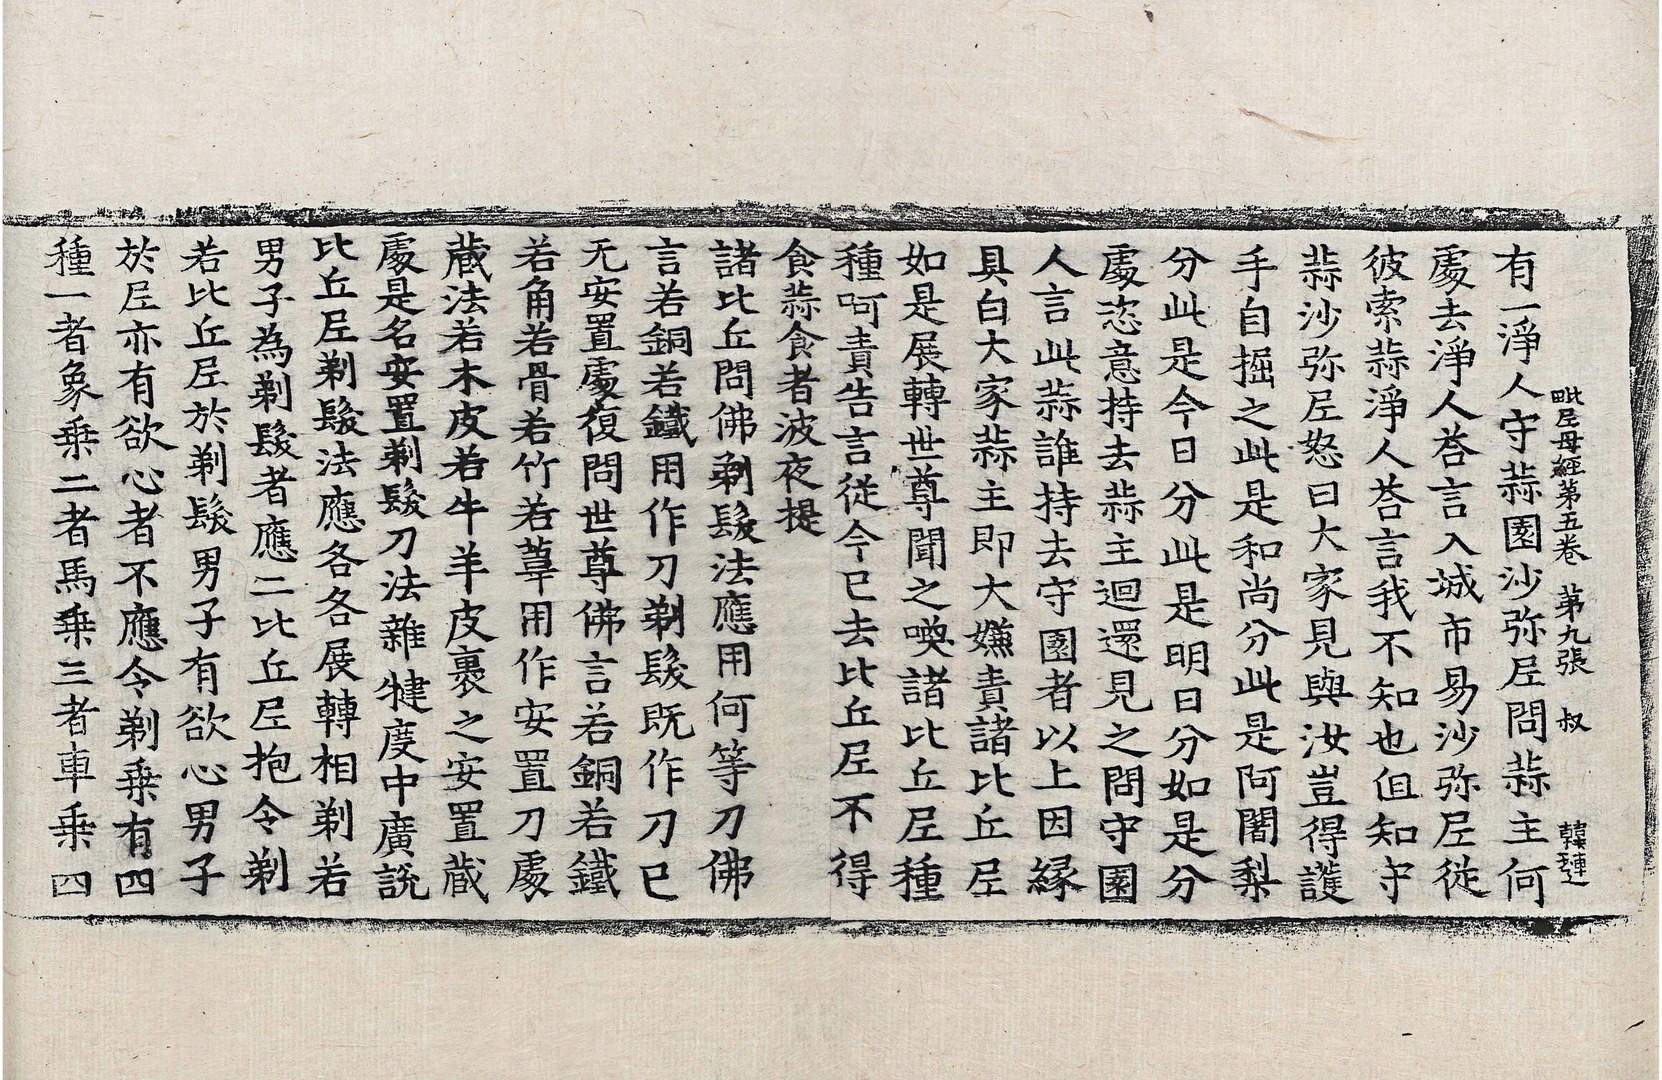 毗尼母經第五卷　第九張　叔
有一淨人守蒜園沙弥尼問蒜主何
處去淨人荅言入城市易沙弥尼從
彼索蒜淨人荅言我不知也但知守
蒜沙弥尼怒曰大家見與汝豈得護
手自掘之此是和尚分此是阿闍梨
分此是今日分此是明日分如是分
處恣意持去蒜主迴還見之問守園
人言此蒜誰持去守園者以上因緣
具白大家蒜主即大嫌責諸比丘尼
如是展轉世尊聞之喚諸比丘尼種
種呵責告言從今已去比丘尼不得
食蒜食者波夜提
諸比丘問佛剃髮法應用何等刀佛
言若銅若鐵用作刀剃髮既作刀已
无安置處復問世尊佛言若銅若鐵
若角若骨若竹若葦用作安置刀處
藏法若木皮若牛羊皮裹之安置藏
處是名安置剃髮刀法雜犍度中廣說
比丘尼剃髮法應各各展轉相剃若
男子為剃髮者應二比丘尼抱令剃
若比丘尼於剃髮男子有欲心男子
於尼亦有欲心者不應令剃乗有四
種一者象乗二者馬乗三者車乗四